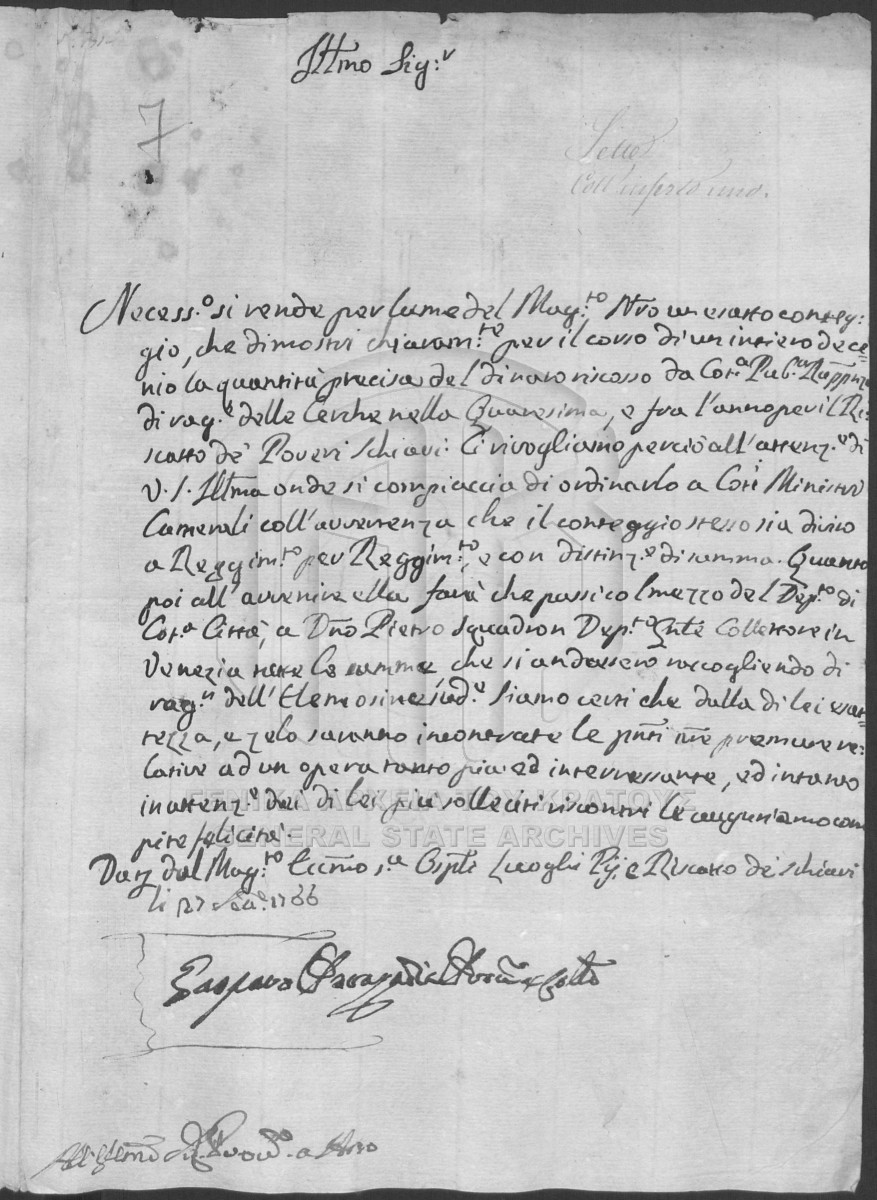 Illmo Sig:r
7
Sette
Coll' inserto uno.
Necess:o si rende per lume del Mag:to Nro un esatto conteg:
gio, che dimostri chiaram:te per il corso di un intiero dece=
nio la quantità precisa del dinaro riscosso da Cot:a Pub:a Rappnza
di rag:e delle Cerche nella Quaresima, e fra l'anno per il Ri=
scatto de' Poveri Schiavi. Ci rivogliamo perciò all'attenz:e di
V. S. Illma onde si compiaccia di ordinarlo a Coti Ministri
Camerali coll'avvertenza che il conteggio stesso sia diviso
a Reggim:to per Reggim:to, e con distinz:e di summa. Quanto
poi all'avvenire ella farà che passi col mezzo del Dep:to di
Cot:a Città, a Dno Pietro Squadron Dep:to Gnle Collettore in
Venezia tutte le summe, che si andassero raccogliendo di
rag:n dell'Elemosine sud:e Siamo certi che dalla di lei esat=
tezza, e zelo saranno incontrate le pnti nre premure re=
lative ad un opera tanto pia ed interressante, ed intanto
in attenz:e dei di lei più solleciti riscontri le auguriamo com
pite felicità.
Daz dal Mag:to Eccmo s:a Ospli Luoghi Pij e Riscatto de' Schiavi
li 27 1766
Gasparo
All' Illmo Sig:r Prov:r a Asso